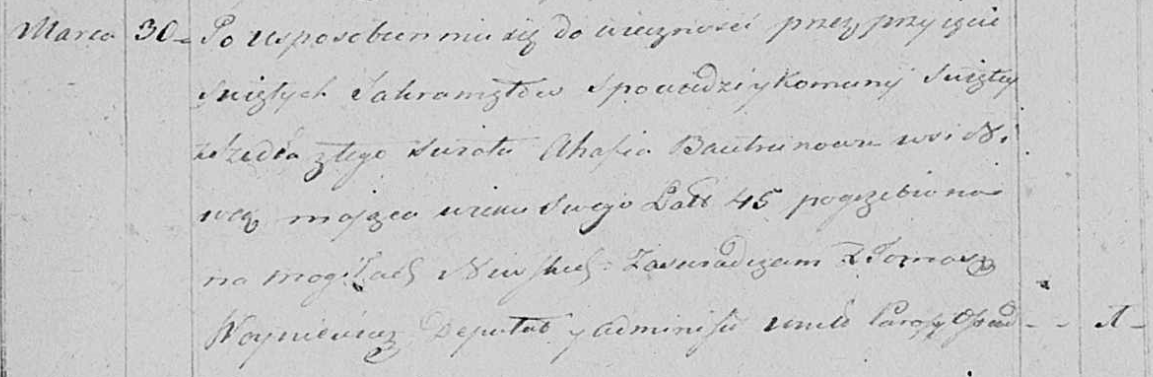 Marca 30 Po usposobienniu się do wieczności przez przyięcie
Swiętych Sakramętow Spowiedzi y Komunij Swiętey
zeszedła z tego swiata Ahafia Bautrunowa wsi Ni,
maiąca wieku swego Latt 45 pogrzebiona
na mogiłach Zaswiadczam X Tomasz
Woyniewicz Deputat y Administr